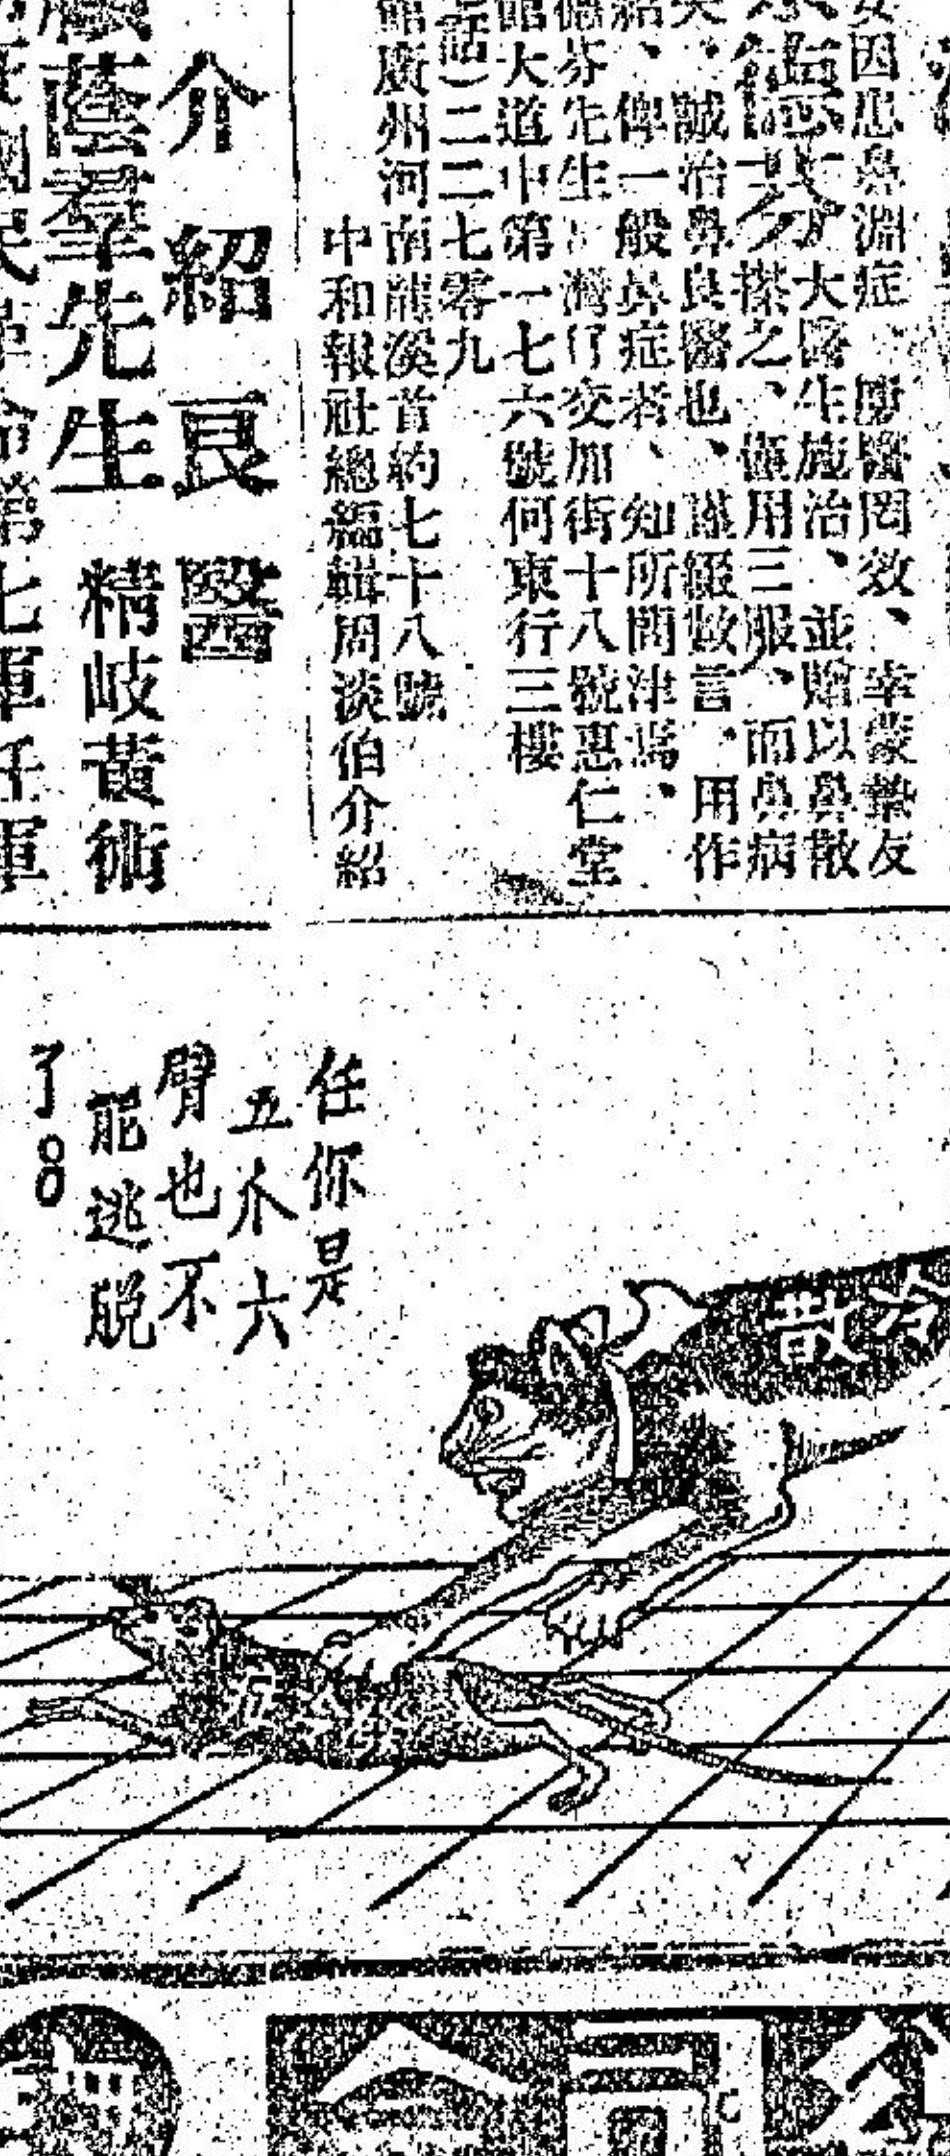 女因患鼻淵症、屢醫罔效、幸蒙摯友
德芬大醫生施治、並贈以鼻散
搽之、僅用三服、而鼻病
誠治鼻良醫也、謹綴數言、用作
紹、俾一般鼻症者、知所問津焉、
德芬先生 灣仔交加街十八號惠仁堂
館大道中第一七六號何東行三樓
話)二二七零九
館廣州河南龍溪首約七十八號
中和報社總編輯周淡伯介紹
介紹良醫
蔭羣先生 精岐黃術
國民革命第七軍任軍
任你是
五爪六
臂也不
能逃脫
了。8
冷
散
公
司
合